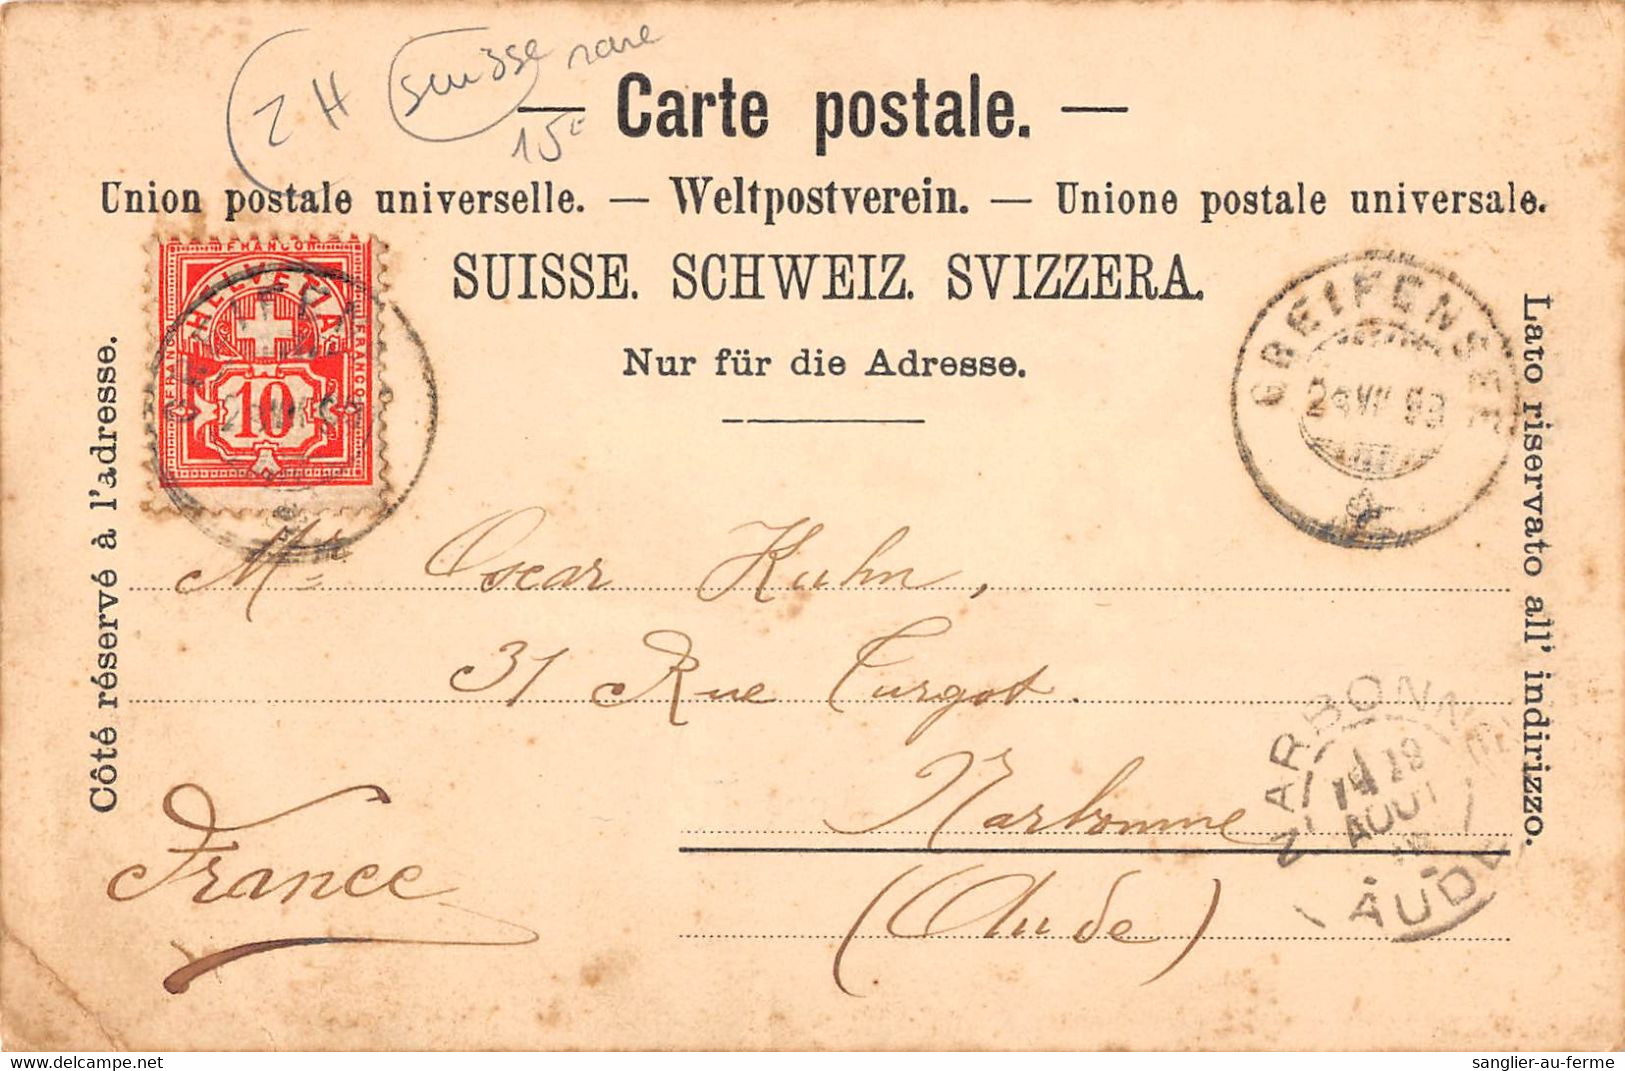 2H suisse rare
15€
— Carte postale. —
Union postale universelle. — Weltpostverein. — Unione postale universale.
SUISSE. SCHWEIZ. SVIZZERA.
Nur für die Adresse.
FRANCO
HELVETIA
FRANCO
FRANCO
10
GREIFENSEE
Côté réservé à l'adresse.
Lato riservato all' indirizzo.
Mr Oscar Kuhn,
31 Rue Turgot.
Narbonne
(Aude)
France
NARBONNE
AOUT
AUDE
www.delcampe.net
sanglier-au-ferme